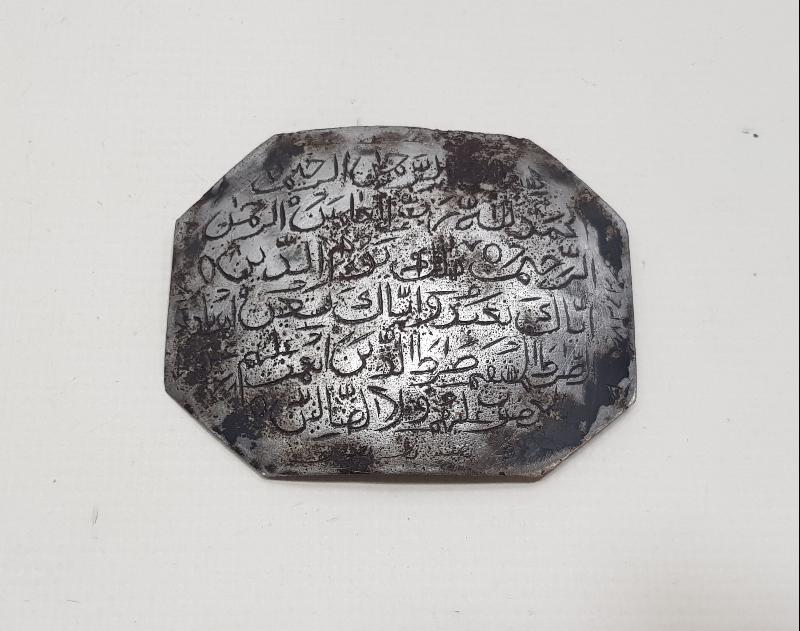 الرَّحمٰن الرحيم
الحمد لله رب العلمين الرحمن
الرَّحيم ملك يوم الدّين
ايّاك نعبد وايّاك نستعين اهدنا
صرط المستقيم صراط الّذين انعمت عليهم
عليهم ولا الضّالين